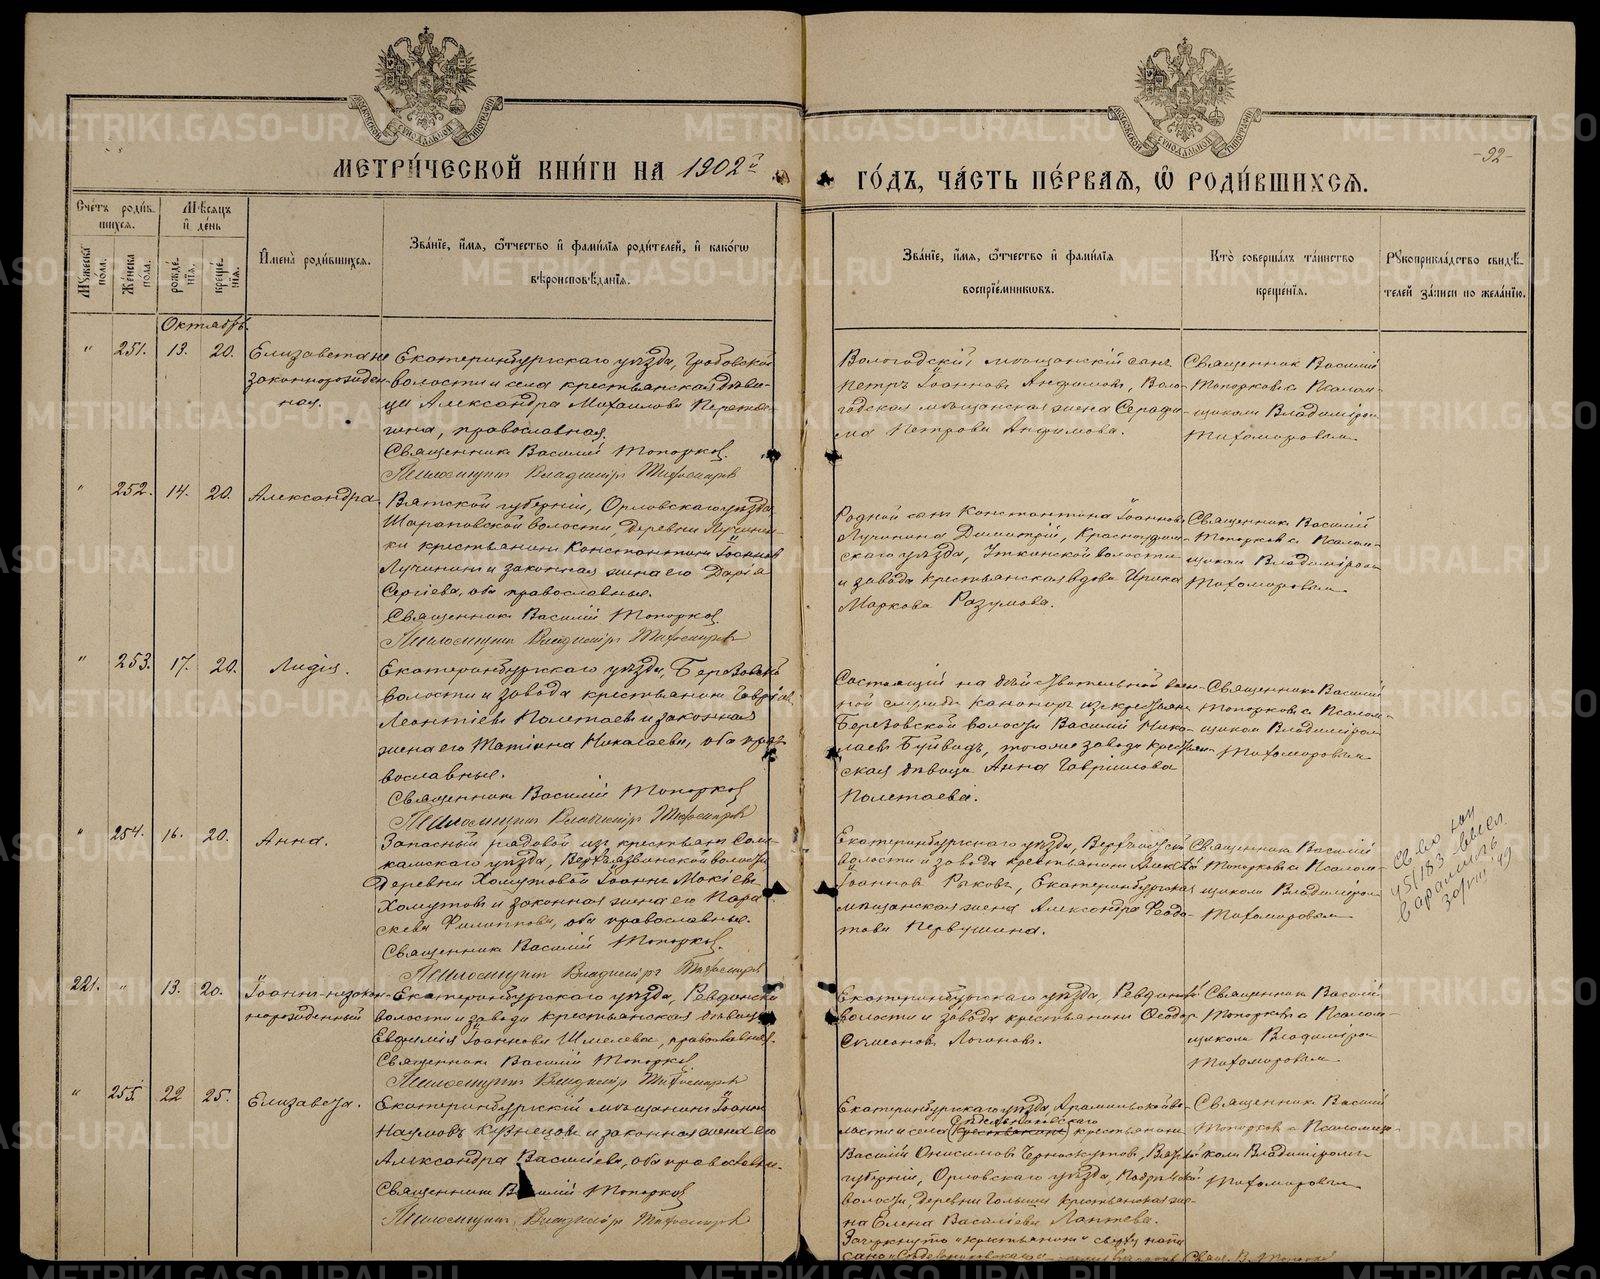 МЕТРИ́ЧЕСКОЙ КНИ́ГИ НА 1902й
ГО́ДЪ, ЧА́СТЬ ПЕ́РВАЯ, Ѿ РОДИ́ВШИХСЯ.
-92-
Сче́тъ роди́в-
шихся.
Мѣ́сяцъ
и҆ де́нь
Мꙋ́жеска
пола.
Же́нска
пола.
рожде́-
нїя.
креще́-
нїя.
И҆мена̀ роди́вшихся.
Зва́нїе, и҆́мя, ѻ҆́тчество и҆ фами́лїя роди́телей, и҆ како́гѡ
вѣроисповѣ́данїя.
Зва́нїе, и҆́мя, ѻ҆́тчество и҆ фами́лїя
воспрїе́мниковъ.
Кто̀ соверша́лъ та́инство
креще́нїя.
Рꙋкоприкла́дство свидѣ́-
телей за́писи по жела́нїю.
Октябрь
" 251. 13. 20. Елизавета не
законнорожден-
ная.
Екатеринбургскаго уѣзда, Гробовской
волости и села крестьянская дѣви-
ца Александра Михаилова
православная.
Священникъ Василій Топорковъ.
Псаломщикъ Владиміръ Тихомировъ
Вологодскій мѣщанскій сынъ
Петръ Іоанновъ Анфимовъ, Воло-
годская мѣщанская жена Серафи-
ма Петрова Анфимова.
Священникъ Василій
Топорковъ с Псалом-
щикомъ Владиміром
Тихомировымъ
" 252. 14. 20. Александра.
Вятской губерніи, Орловскаго уѣзда
Шараповской волости, деревни
крестьянинъ Константинъ Іоанновъ
Лучининъ и законная жена его Дарія
Сергіева, оба православные.
Священникъ Василій Топорковъ
Псаломщикъ Владиміръ Тихомировъ
Родной сынъ Константина Іоаннова
Лучинина Димитрій, Красноуфим-
скаго уѣзда, Уткинской волости
и завода крестьянская вдова Ирина
Маркова Разумова.
Священникъ Василій
Топорковъ с Псалом-
щикомъ Владиміромъ
Тихомировымъ
" 253. 17. 20. Лидія.
Екатеринбургскаго уѣзда, Березовской
волости и завода крестьянинъ Гавріилъ
Леонтіевъ Полетаевъ и законная
жена его Татіана Николаева, оба пра-
вославные.
Священникъ Василій Топорковъ
Псаломщикъ Владиміръ Тихомировъ
Состоящій на дѣйствительной воен-
ной службѣ канониръ из крестьянъ
Березовской волости Василій Нико-
лаевъ того же завода крестьян-
ская дѣвица Анна Гавріилова
Полетаева.
Священникъ Василій
Топорковъ с Псалом-
щикомъ Владиміром
Тихомировымъ
" 254. 16. 20. Анна.
Запасный рядовой изъ крестьянъ Соли-
камскаго уѣзда, Верхъязвинской волости
деревни Холмутовой Іоаннъ Мокіевъ
Холмутовъ и законная жена его Пара-
скева Филиппова, оба православные.
Священникъ Василій Топорковъ.
Псаломщикъ Владиміръ Тихомировъ
Екатеринбургскаго уѣзда,
волости и завода крестьянинъ
Іоанновъ Рыковъ, Екатеринбургская
мѣщанская жена Александра Феодо-
това Первушина.
Священникъ Василій
Топорковъ с Псалом-
щикомъ Владиміром
Тихомировымъ
221. " 13. 20. Іоаннъ-незакон-
норожденный
Екатеринбургскаго уѣзда, Ревдинской
волости и завода крестьянская дѣвица
Евдокія Іоаннова Шмелева, православная.
Священникъ Василій Топорковъ
Псаломщикъ Владиміръ Тихомировъ
Екатеринбургскаго уѣзда, Ревдинской
волости и завода крестьянинъ Феодоръ
Симеоновъ Логиновъ.
Священникъ Василій
Топорковъ с Псалом-
щикомъ Владиміром
Тихомировымъ
" 255. 22 25. Елизавета.
Екатеринбургскій мѣщанинъ Іоаннъ
Наумовъ Кузнецовъ и законная жена его
Александра Василіева, оба православные.
Священникъ Василій Топорковъ
Псаломщикъ Владиміръ Тихомировъ
Екатеринбургскаго уѣзда, Арамильской во-
лости и села (крестьянинъ) крестьянинъ
Василій Онисимовъ Черноскутовъ, Вятской
губерніи, Орловскаго уѣзда,
волости, деревни крестьянская же-
на Елена Василіева Лаптева.
Зачеркнуто "крестьянинъ" сверху напи-
сано
Священникъ Василій
Топорковъ с Псаломщи-
комъ Владиміромъ
Тихомировымъ